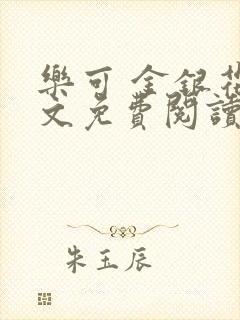 樂可 金銀花
文免費閱讀
朱玉辰